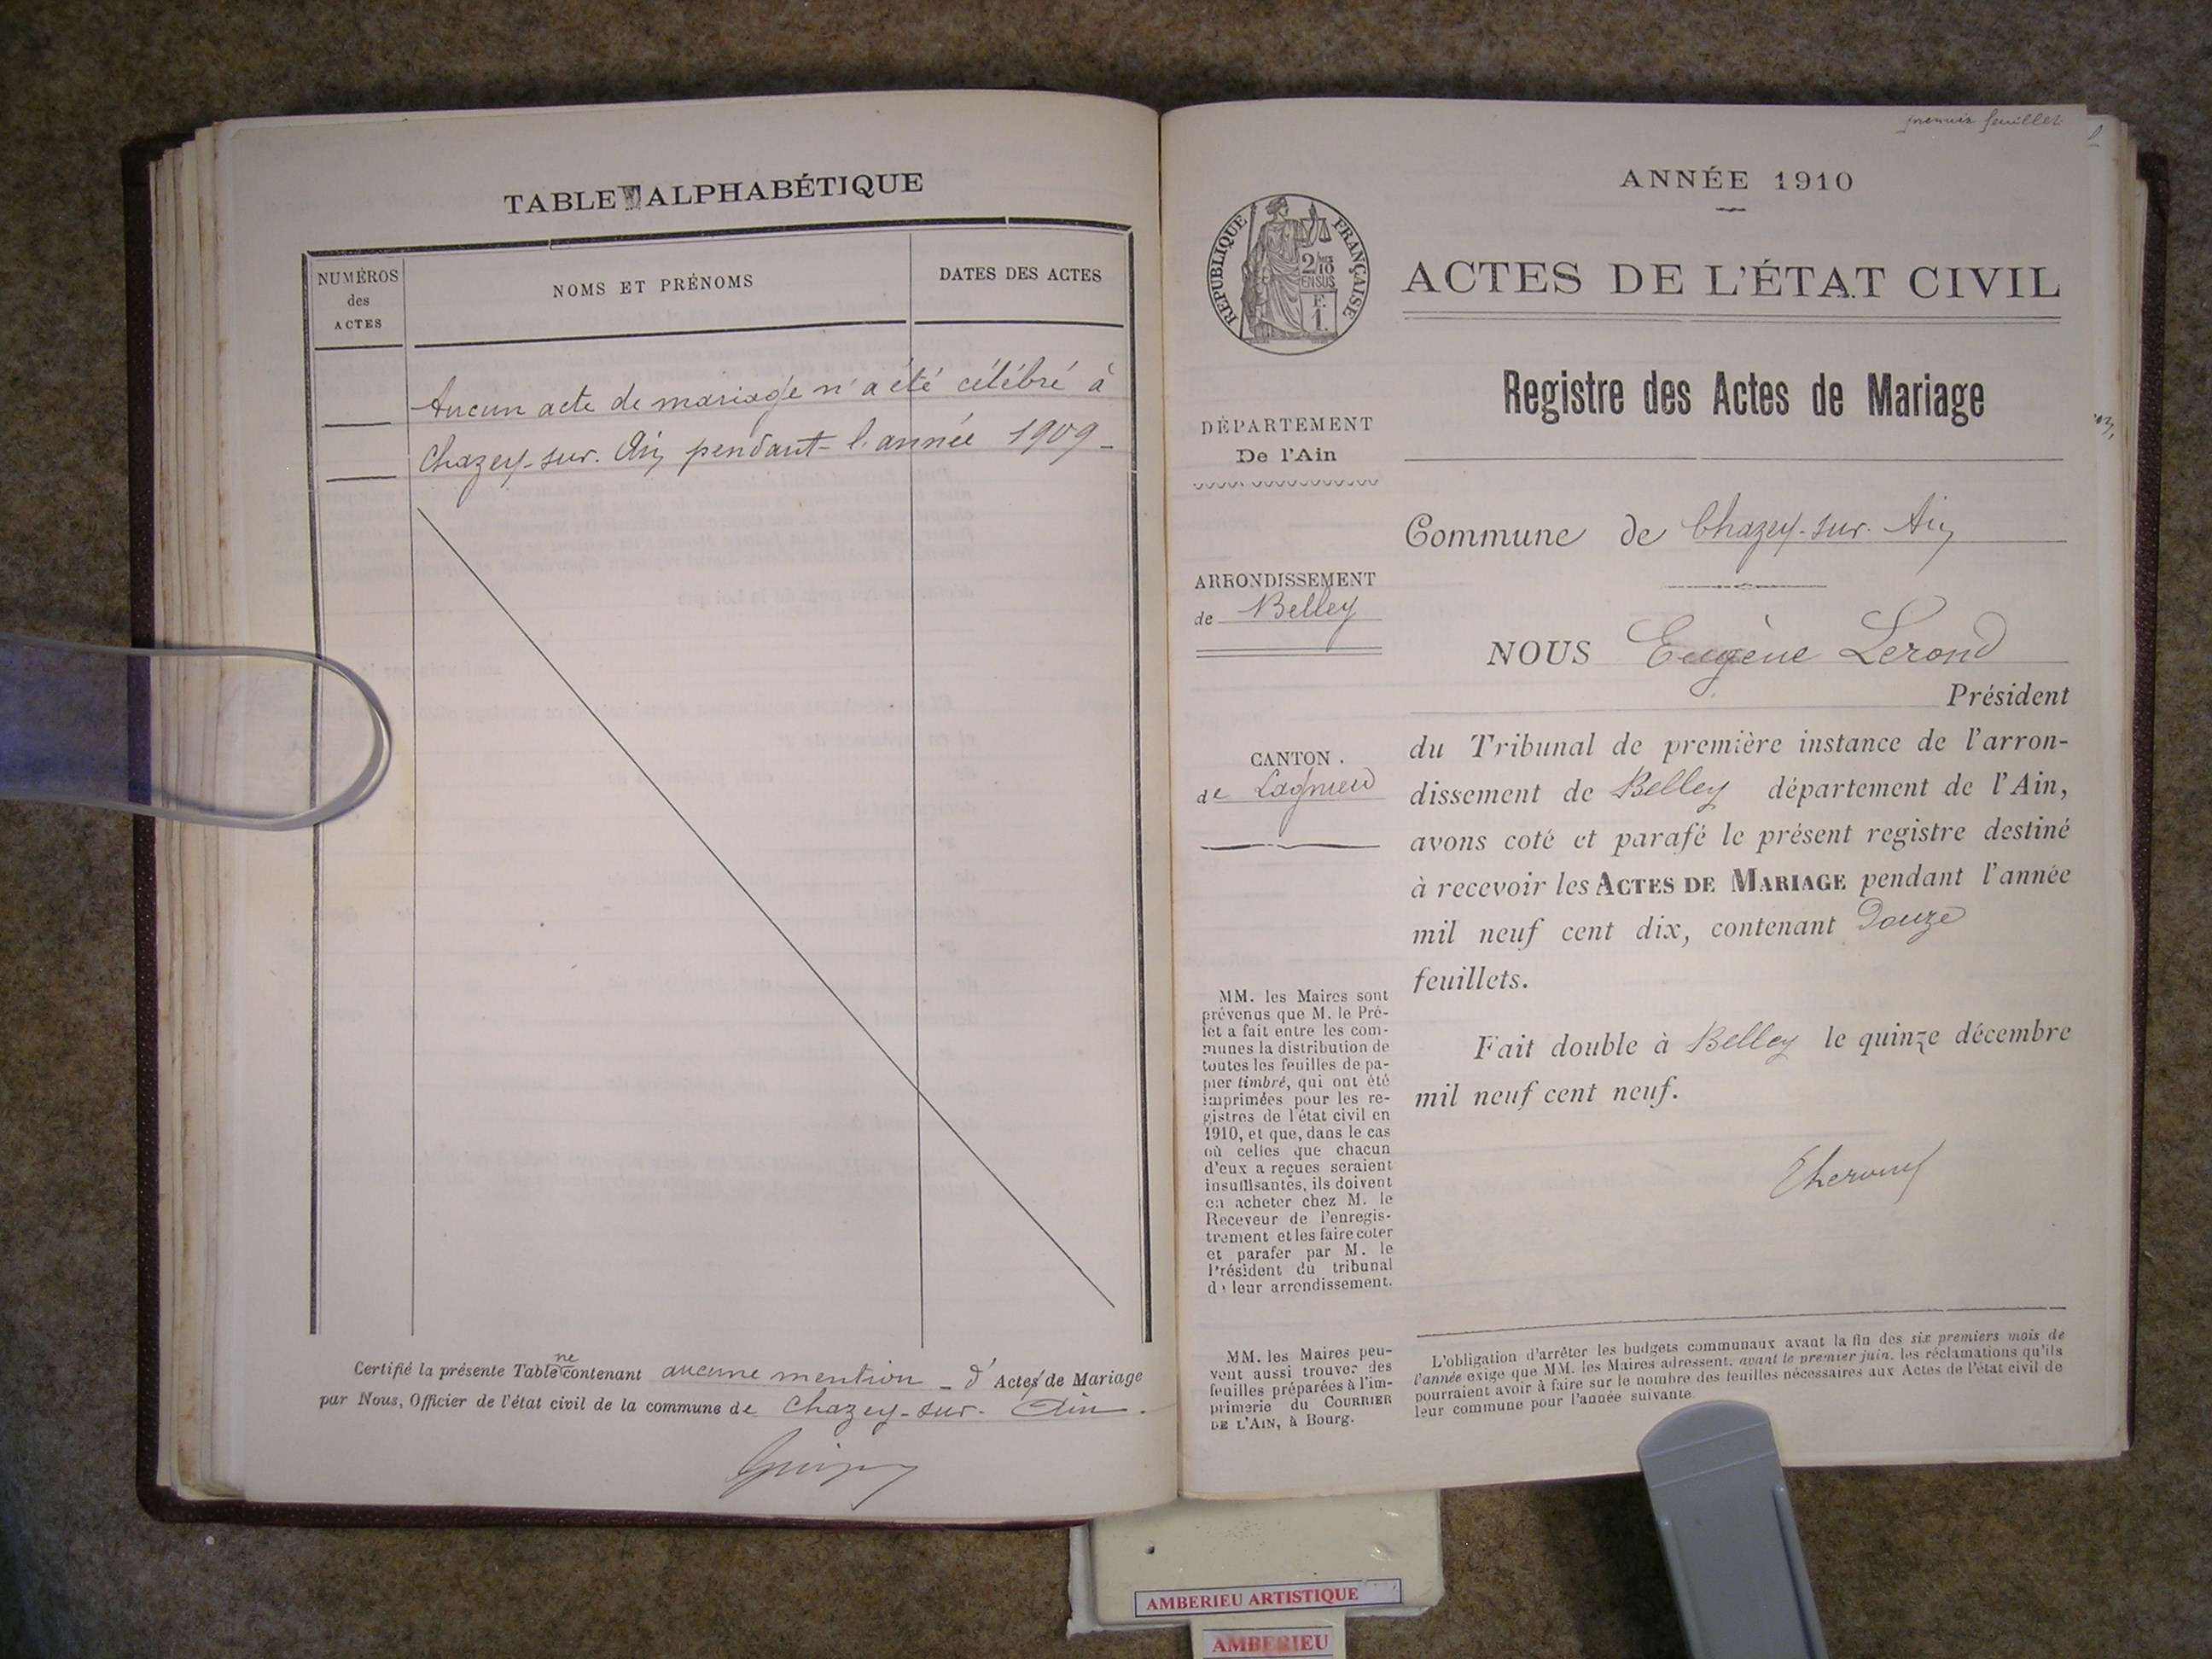 TABLE ALPHABÉTIQUE
NUMÉROS
des
ACTES
NOMS ET PRÉNOMS
DATES DES ACTES
Aucun acte de mariage n'a été célébré à
Chazey-sur-Ain pendant l'année 1909 -
Certifié la présente Table ne contenant aucune mention - d' Actes de Mariage
par Nous, Officier de l'état civil de la commune de Chazey-sur-Ain.
premier feuillet
ANNÉE 1910
RÉPUBLIQUE FRANÇAISE
2/10
EN SUS
F.
1.
ACTES DE L'ÉTAT CIVIL
Registre des Actes de Mariage
DÉPARTEMENT
De l'Ain
ARRONDISSEMENT
de Belley
CANTON.
de Lagnieu
MM. les Maires sont
prévenus que M. le Pré-
fet a fait entre les com-
munes la distribution de
toutes les feuilles de pa-
pier timbré, qui ont été
imprimées pour les re-
gistres de l'état civil en
1910, et que, dans le cas
où celles que chacun
d'eux a reçues seraient
insuffisantes, ils doivent
en acheter chez M. le
Receveur de l'enregis-
trement et les faire coter
et parafer par M. le
Président du tribunal
de leur arrondissement.
MM. les Maires peu-
vent aussi trouver des
feuilles préparées à l'im-
primerie du COURRIER
DE L'AIN, à Bourg.
Commune de Chazey-sur-Ain
NOUS Eugène Lerond
Président
du Tribunal de première instance de l'arron-
dissement de Belley département de l'Ain,
avons coté et parafé le présent registre destiné
à recevoir les ACTES DE MARIAGE pendant l'année
mil neuf cent dix, contenant Douze
feuillets.
Fait double à Belley le quinze décembre
mil neuf cent neuf.
L'obligation d'arrêter les budgets communaux avant la fin des six premiers mois de
l'année exige que MM. les Maires adressent, avant le premier juin, les réclamations qu'ils
pourraient avoir à faire sur le nombre des feuilles nécessaires aux Actes de l'état civil de
leur commune pour l'année suivante.
AMBERIEU ARTISTIQUE
AMBERIEU